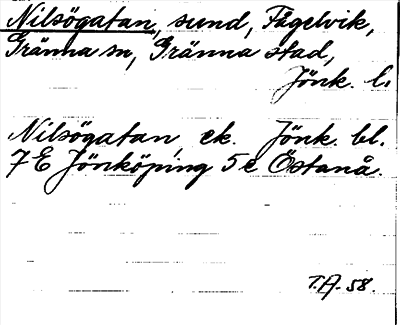 Nilsögatan, sund, Fågelvik,
Gränna sn, Gränna stad,
Jönk. l.
Nilsögatan ek. Jönk. bl.
7 E Jönköping 5 e Östanå.
T.A. 58.